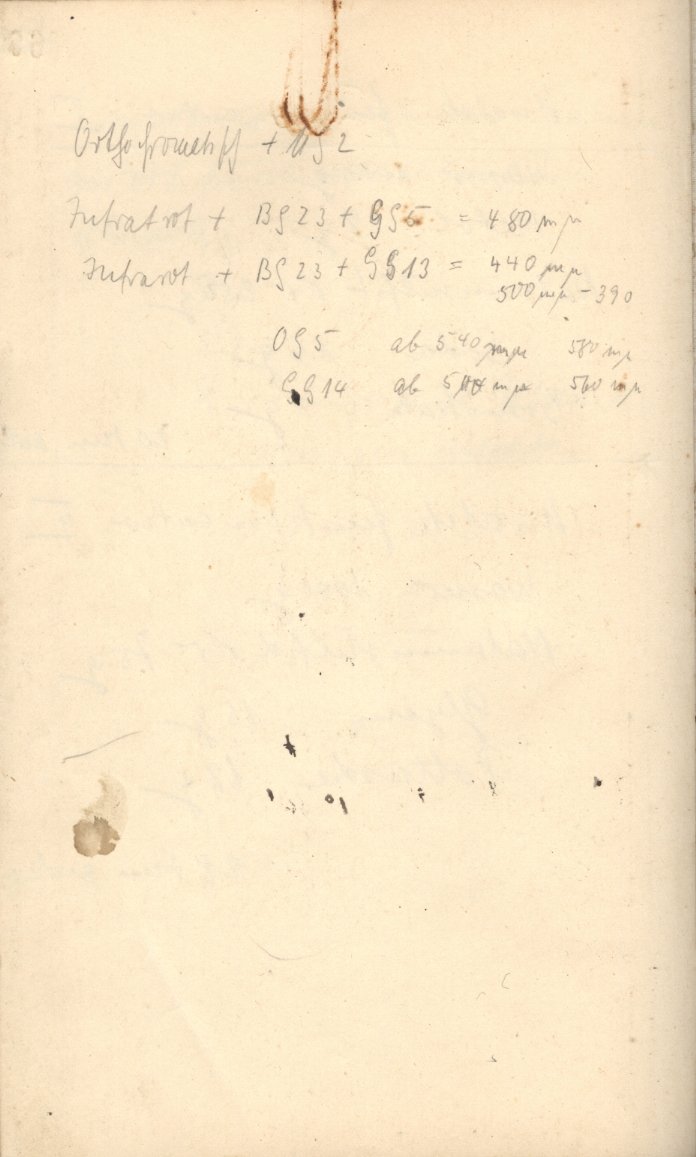 Orthochromatisch + UG 2
Infratrot + BG 23 + GG 5 = 480 mµ
Infrarot + BG 23 + GG 13 = 440 mµ
500 mµ - 390
OG 5 ab 540 mµ 580 mµ
GG 14 ab mµ 560 mµ